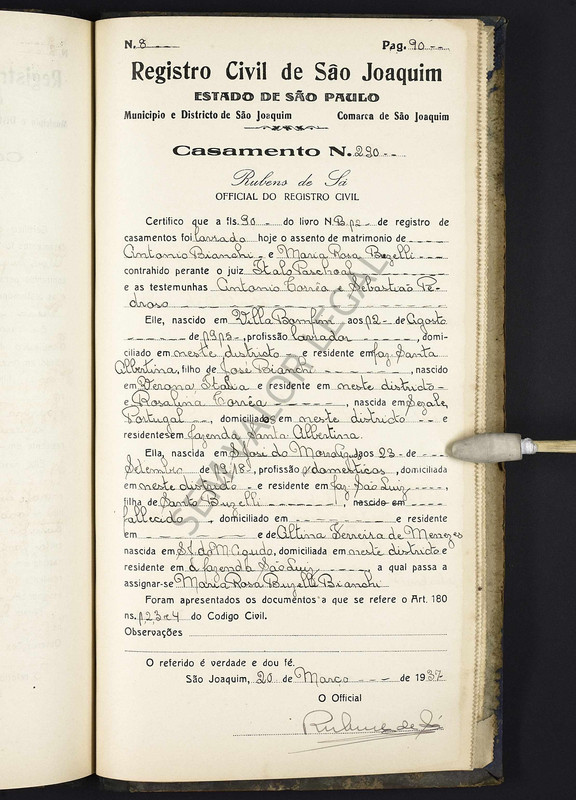 N. 8
Pag. 90
Registro Civil de São Joaquim
ESTADO DE SÃO PAULO
Municipio e Districto de São Joaquim Comarca de São Joaquim
Casamento N. 290
Rubens de Sá
OFFICIAL DO REGISTRO CIVIL
Certifico que a fls. 90 do livro N. B. 12 de registro de
casamentos foi lavrado hoje o assento de matrimonio de
Antonio Bianchi e Maria Rosa Buzelli
contrahido perante o juiz Italo Paschoal
e as testemunhas Antonio Corrêa e Sebastião Pe-
droso
Elle, nascido em Villa Bomfim aos 12 de Agosto
de 1913, profissão lavrador, domi-
ciliado em neste districto e residente em faz. Santa
Albertina, filho de José Bianchi, nascido
em Verona, Italia e residente em neste districto
e Rosalina Corrêa, nascida em
Portugal, domiciliados em neste districto e
residentes em fazenda Santa Albertina.
Ella, nascida em S. José do Morro Agudo aos 23 de
Setembro de 1918, profissão domesticas, domiciliada
em neste districto e residente em faz. São Luiz,
filha de Santo Buzelli, nascido em
fallecido, domiciliado em e residente
em e de Altina Ferreira de Menezes
nascida em S. J. do M. Agudo, domiciliada em neste districto e
residente em á fazenda São Luiz, a qual passa a
assignar-se Maria Rosa Buzelli Bianchi
Foram apresentados os documentos a que se refere o Art. 180
ns. 1, 2, 3 e 4 do Codigo Civil.
Observações
O referido é verdade e dou fé.
São Joaquim, 20 de Março de 1937
O Official
Rubens de Sá
SEM VALOR LEGAL